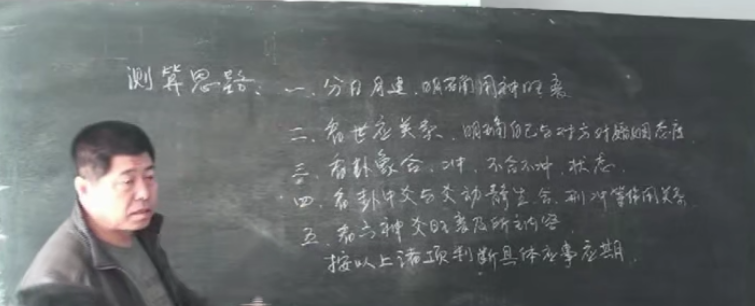 测算思路: 一、分日月建,明确用神旺衰
二、看世应关系 明确自己与对方对婚姻态度
三、看卦象合、冲、不合不冲、状态
四、看卦中爻与爻动静生合刑冲等作用关系
五、看六神爻旺衰及所主内容
按以上诸项判断具体应事应期.